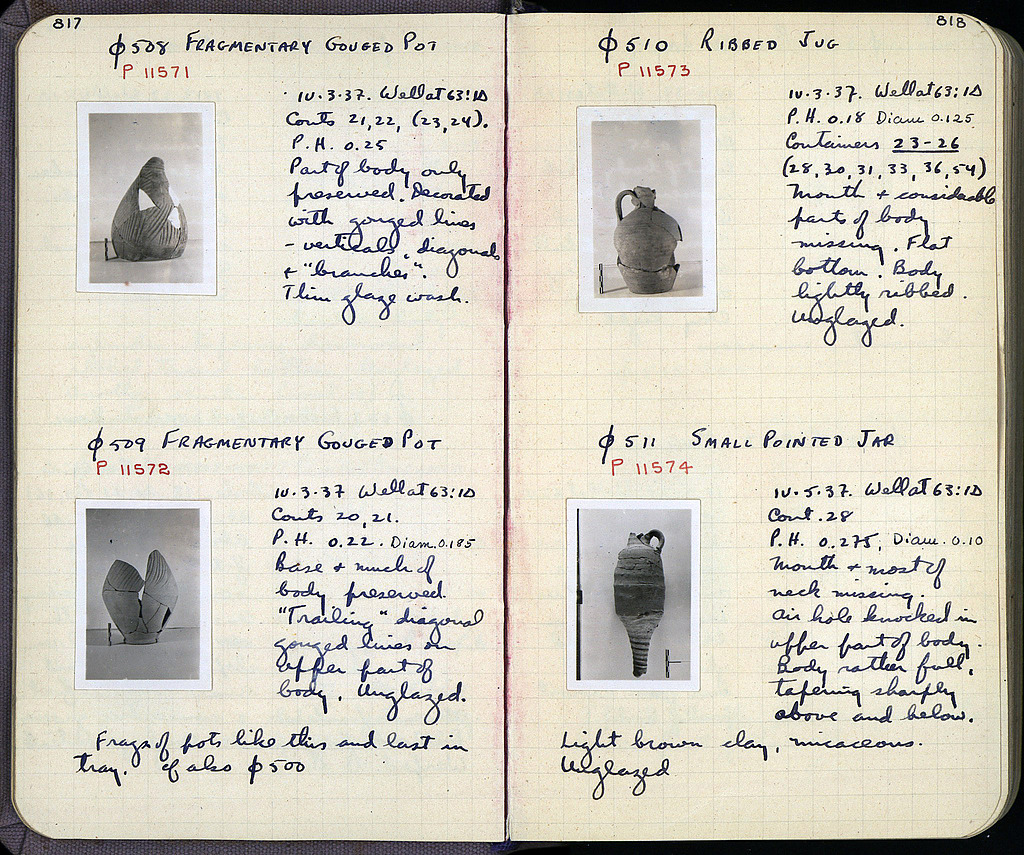 817
ϕ508 FRAGMENTARY GOUGED POT
P 11571
IV.3.37. Well at 63:ΙΔ
Conts 21,22, (23,24).
P.H. 0.25
Part of body only
preserved. Decorated
with gouged lines
- verticals, diagonals
+ "branches".
Thin glaze wash.
ϕ509 FRAGMENTARY GOUGED POT
P 11572
IV.3.37 Well at 63:ΙΔ
Conts 20,21.
P.H. 0.22. Diam. 0.185
Base + much of
body preserved.
"Trailing" diagonal
gouged lines on
upper part of
body. Unglazed.
Frags of pots like this and last in
tray. cf also ϕ500
818
ϕ510 RIBBED JUG
P 11573
IV.3.37. Well at 63:ΙΔ
P.H. 0.18 Diam 0.125
Containers 23-26
(28, 30, 31, 33, 36, 54)
Mouth + considerable
parts of body
missing. Flat
bottom. Body
lightly ribbed.
Unglazed.
ϕ511 SMALL POINTED JAR
P 11574
IV.5.37. Well at 63:ΙΔ
Cont. 28
P.H. 0.275, Diam. 0.10
Mouth + most of
neck missing.
Air hole knocked in
upper part of body.
Body rather full,
tapering sharply
above and below.
Light brown clay, micaceous.
Unglazed